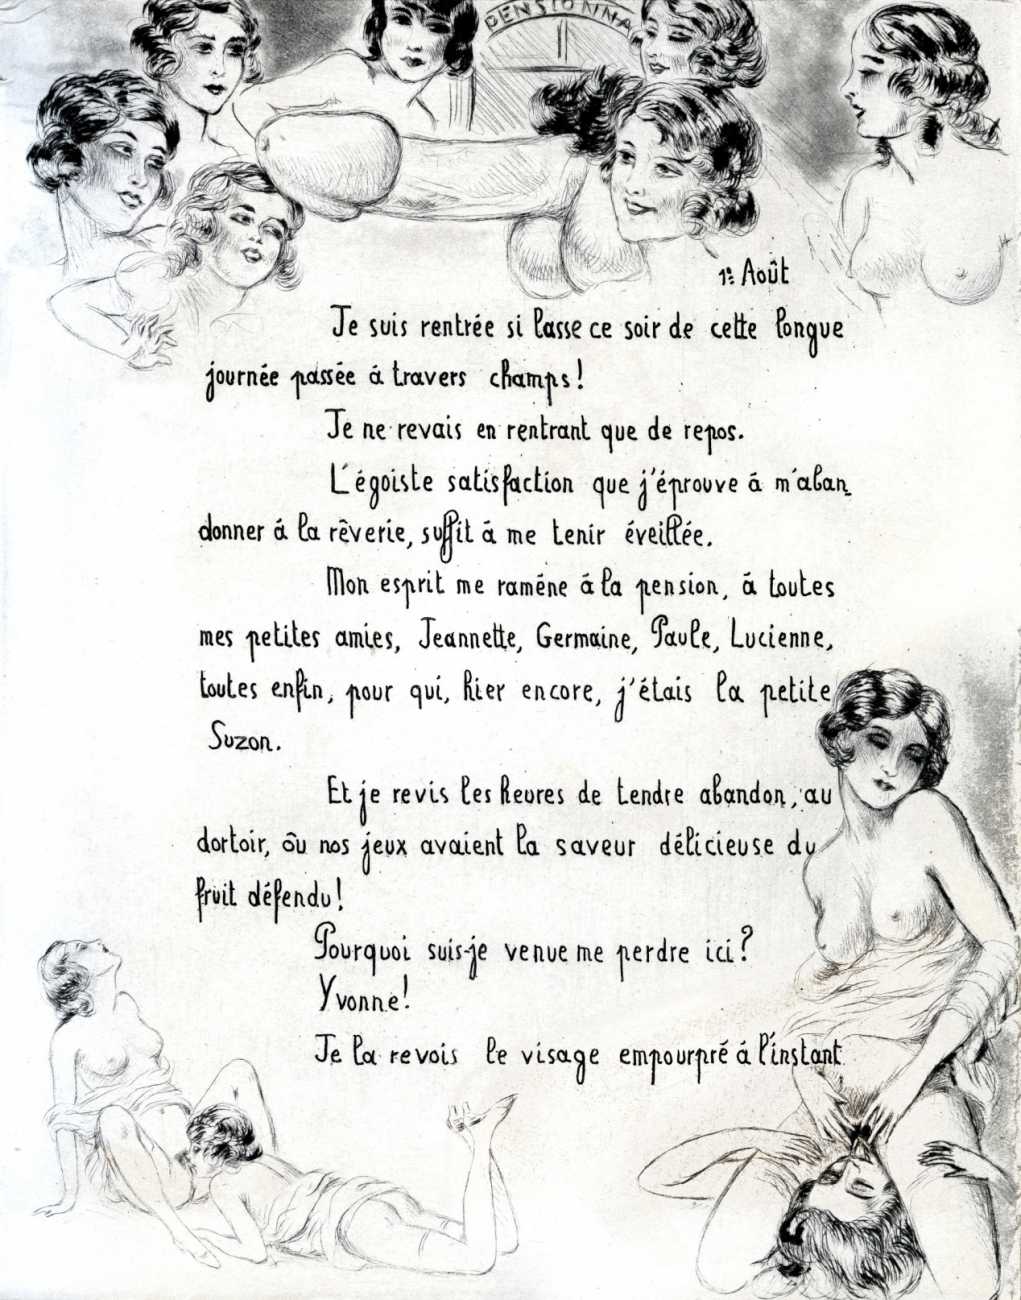 PENSIONNA
1er Août
Je suis rentrée si lasse ce soir de cette longue
journée passée á travers champs!
Je ne revais en rentrant que de repos.
L'égoiste satisfaction que j'éprouve á m'aban_
donner á la rêverie, suffit á me tenir éveillée.
Mon esprit me raméne á la pension, á toutes
mes petites amies, Jeannette, Germaine, Paule, Lucienne,
toutes enfin, pour qui, hier encore, j'étais la petite
Suzon.
Et je revis les heures de tendre abandon, au
dortoir, ôu nos jeux avaient la saveur délicieuse du
fruit défendu!
Pourquoi suis-je venue me perdre ici?
Yvonne!
Je la revois le visage empourpré á l'instant